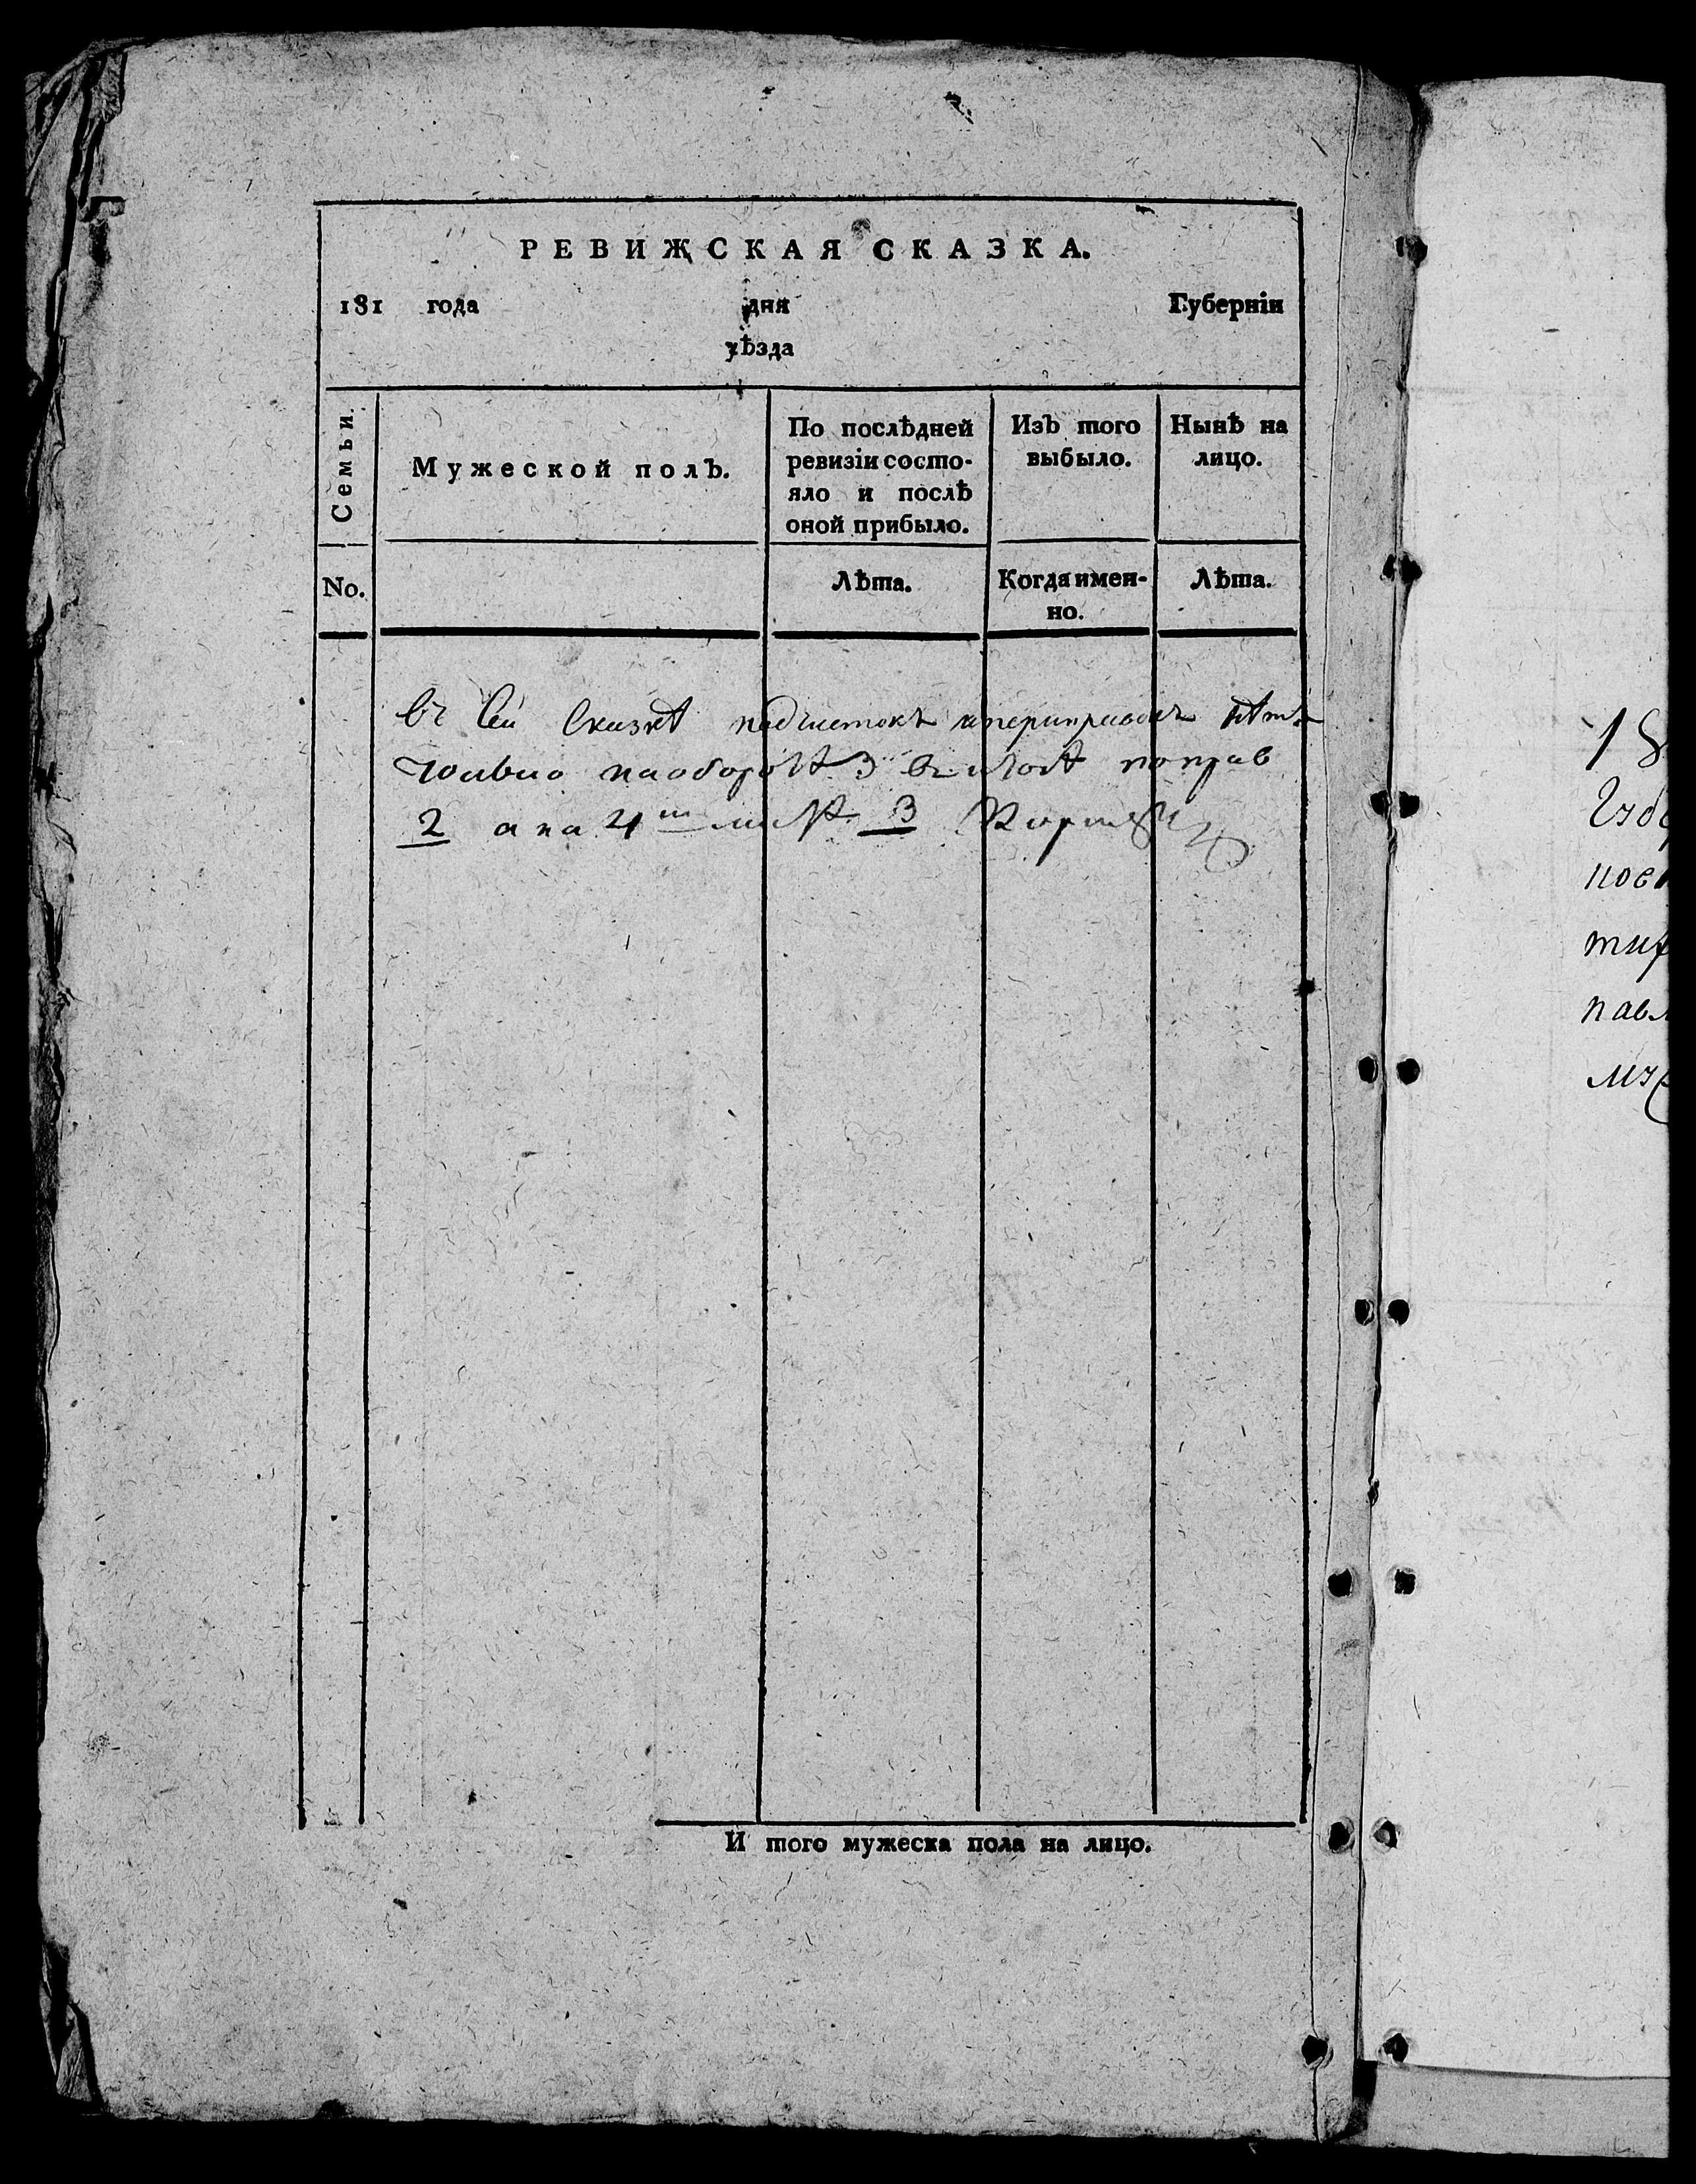 РЕВИЖСКАЯ СКАЗКА.
181 года дня Губерніи
уѣзда
Семьи.
Мужеской полъ.
По послѣдней ревизіи состо-
яло и послѣ
оной прибыло.
Изъ того
выбыло.
Нынѣ на
лицо.
No.
Лѣта.
Когда имен-
но.
Лѣта.
въ сей сказкѣ подчистокъ и переправокъ нѣтъ
только на оборотѣ 3 въ итогѣ поправ
2 а на 4м 3
И того мужеска пола на лицо.
18
пове
тир
павл